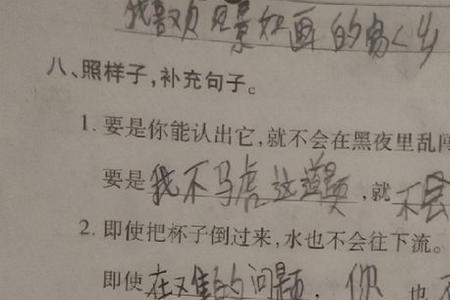 我喜欢风景如画的家乡
八、照样子,补充句子。
1. 要是你能认出它,就不会在黑夜里乱闯
要是我不马虎这道题,就不会
2. 即使把杯子倒过来,水也不会往下流。
即使在难的问题,你也